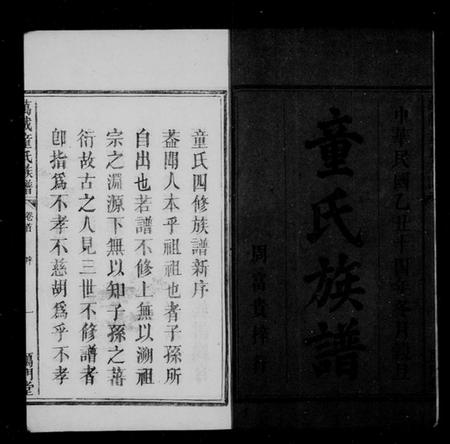 中華民國乙丑十四年冬月穀旦
童氏族譜
周富貴梓行
童氏四修族譜新序
葢聞人本乎祖祖也者子孫所
自出也若譜不修上無以溯祖
宗之淵源下無以知子孫之蕃
衍故古之人見三世不修譜者
卽指爲不孝不慈胡爲乎不孝
萬載童氏族譜
卷首
序
一